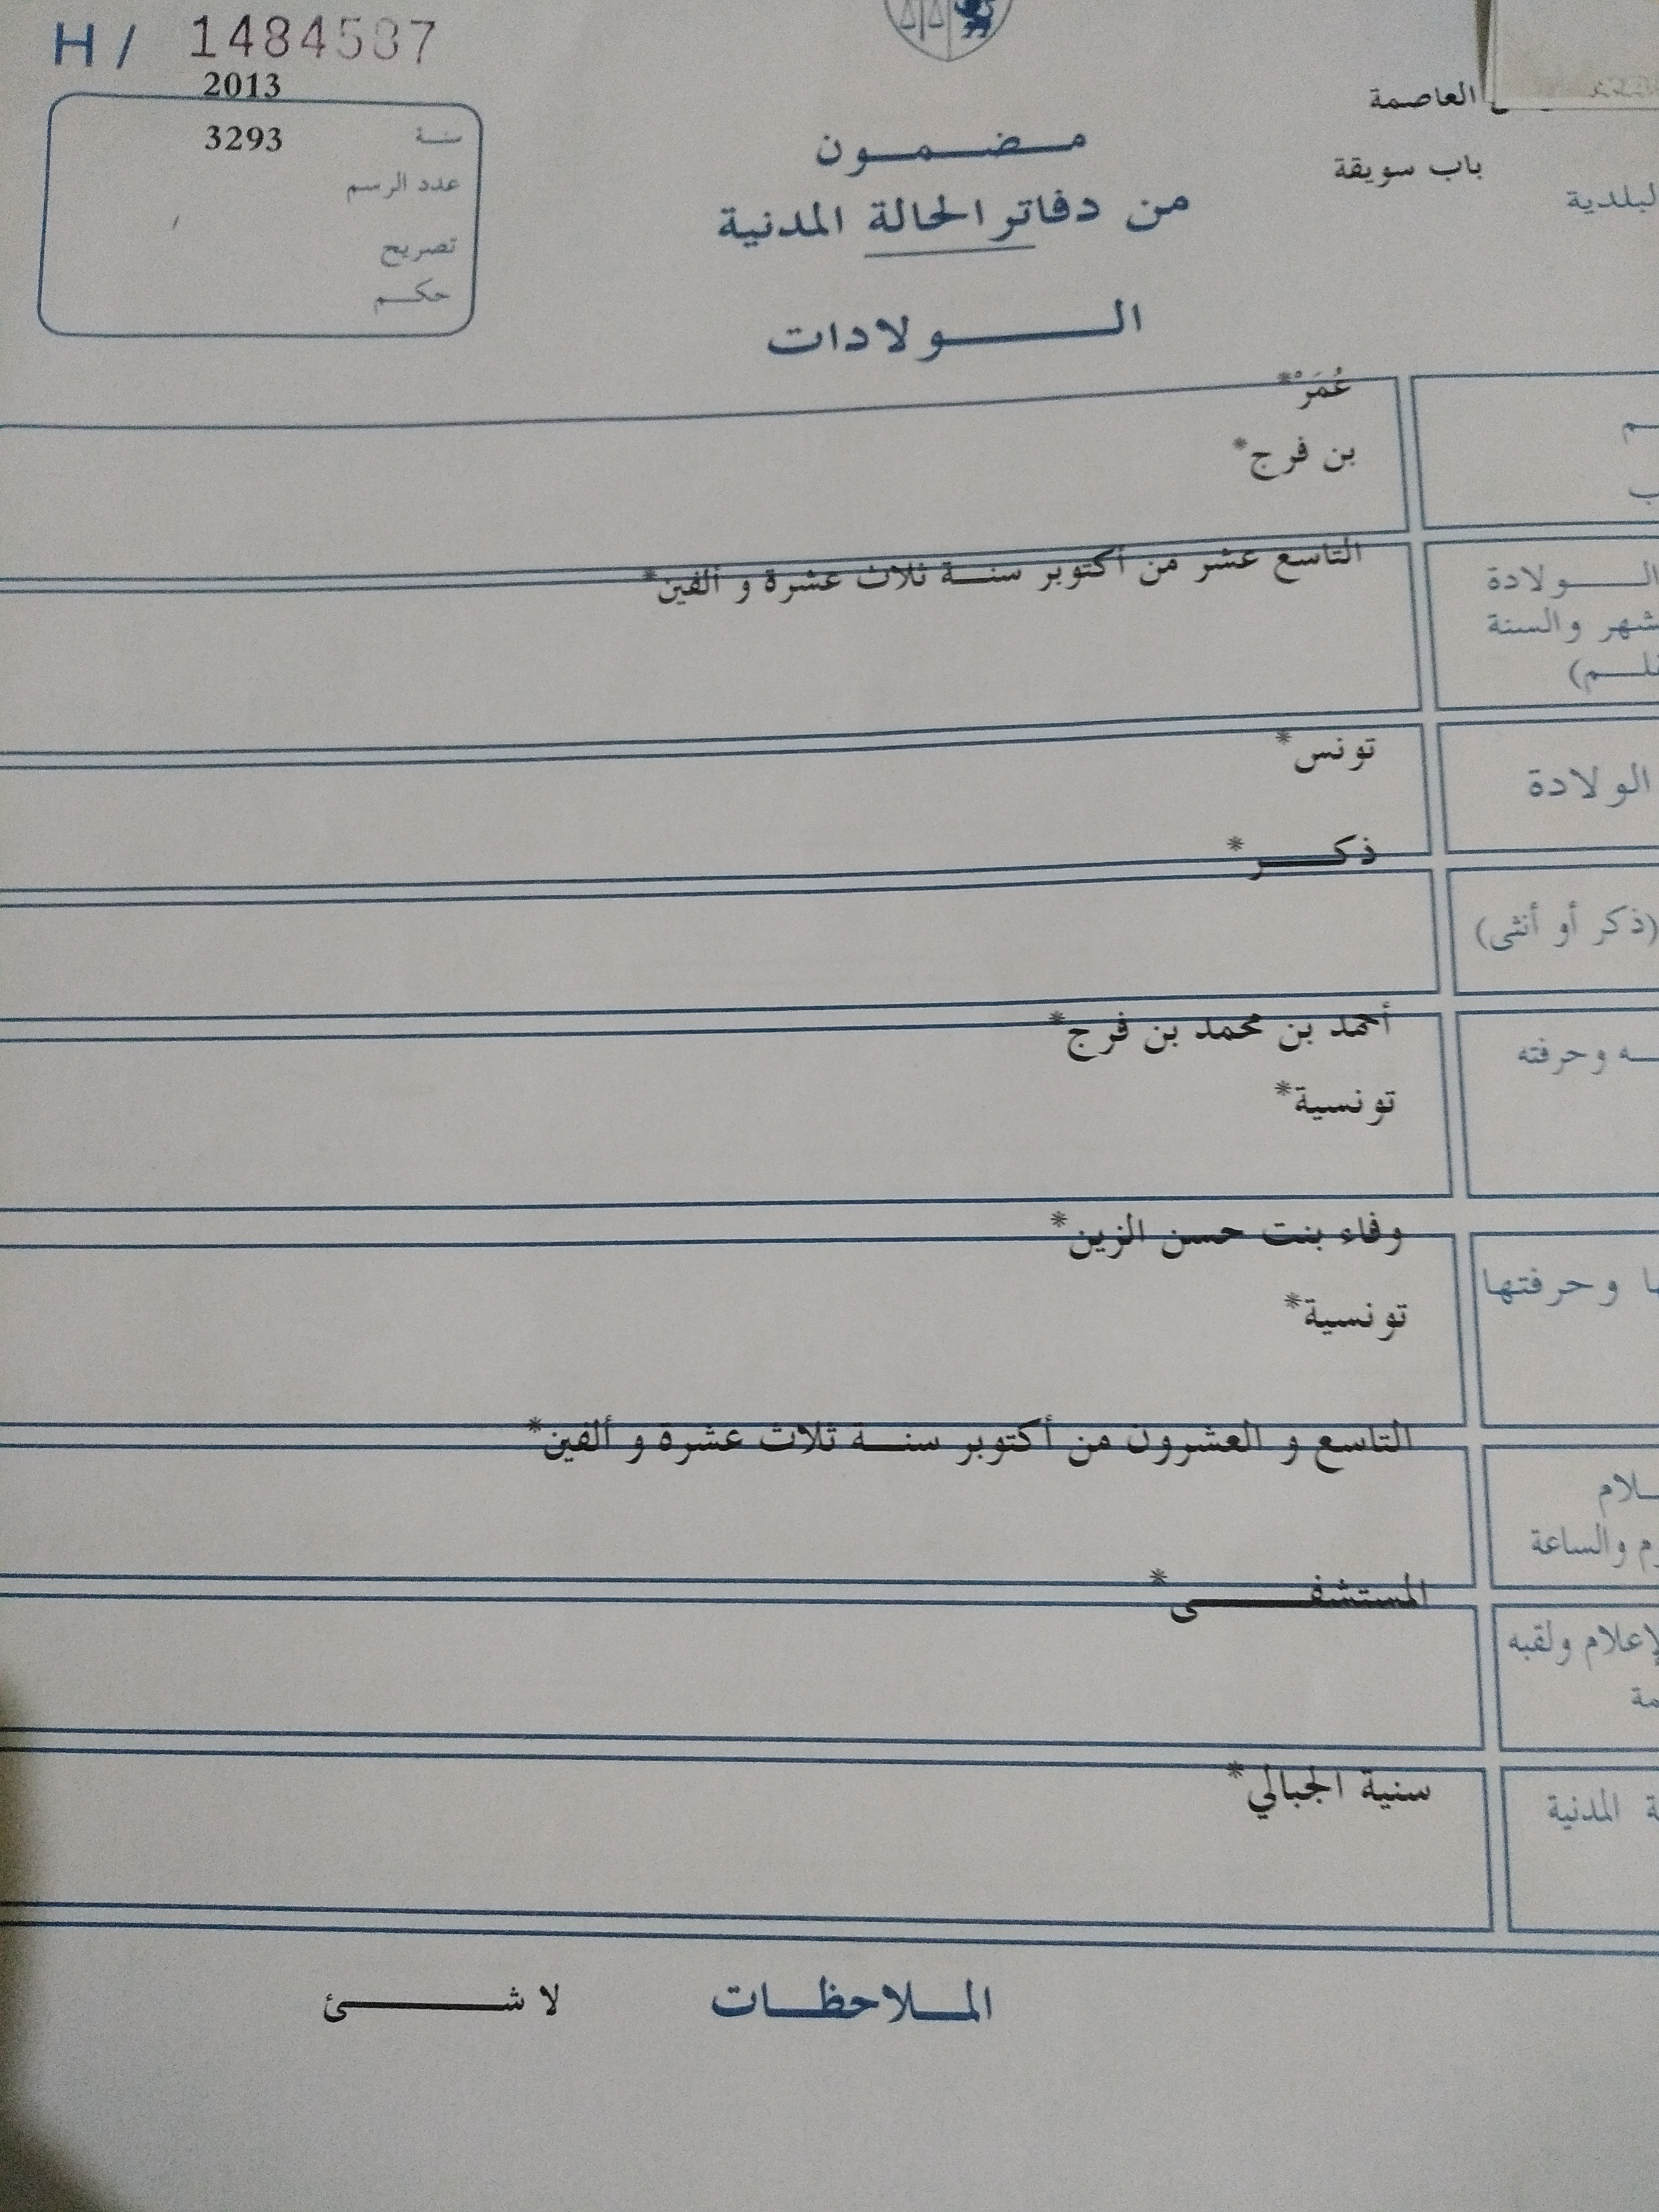 H / 1484587
2013
العاصمة
سنة 3293
مضمون
باب سويقة
عدد الرسم
من دفاتر الحالة المدنية
تصريح
حكم
الولادات
عُمَرْ*
بن فرج*
التاسع عشر من أكتوبر سنة ثلاث عشرة و ألفين*
الولادة
والسنة
تونس*
الولادة
ذكر*
(ذكر أو أنثى)
أحمد بن محمد بن فرج*
وحرفته
تونسية*
وفاء بنت حسن الزين*
وحرفتها
تونسية*
التاسع و العشرون من أكتوبر سنة ثلاث عشرة و ألفين*
والساعة
المستشفى*
ولقبه
سنية الجبالي*
المدنية
الملاحظات لا شئ